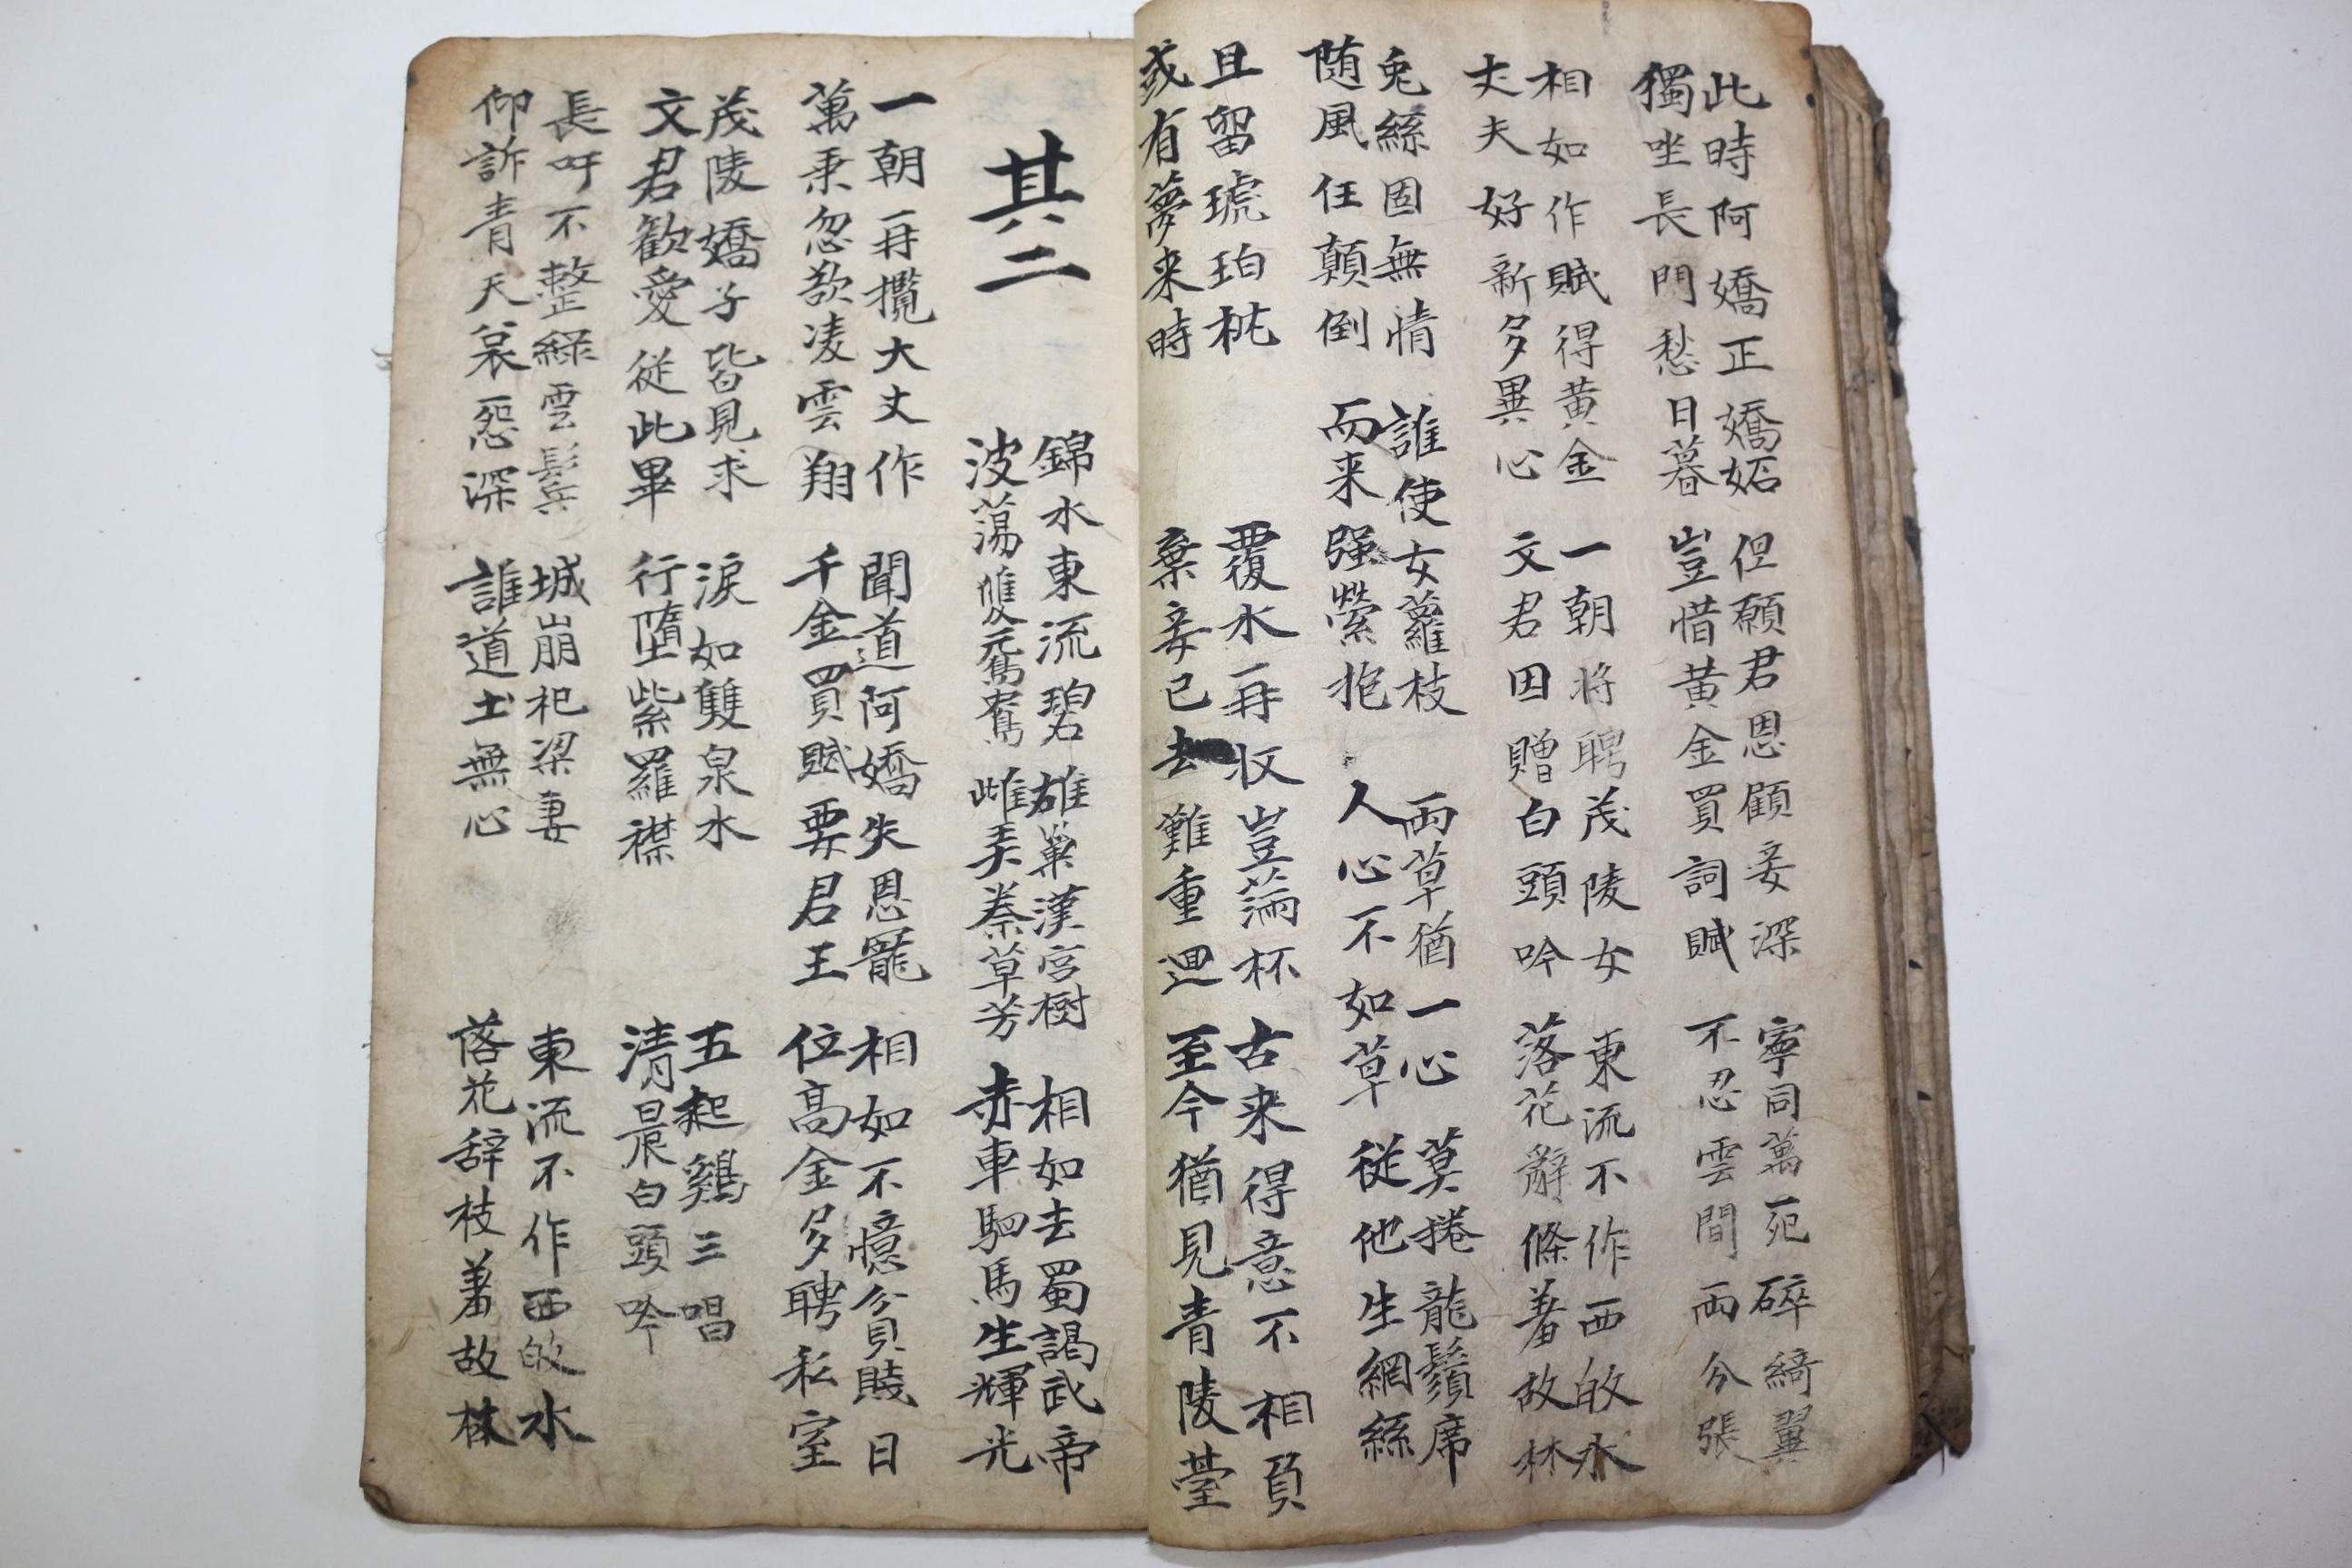 此時阿嬌正嬌妬
獨坐長門愁日暮
但願君恩顧妾深
豈惜黄金買詞賦
寧同萬死碎綺翼
不忍雲間兩分張
相如作賦得黄金
丈夫好新多異心
一朝將聘茂陵女
文君因贈白頭吟
東流不作西皈水
落花辭條羞故林
兎絲固無情
随風任顛倒
誰使女蘿枝
而来强縈抱
兩草猶一心
人心不如草
莫捲龍鬚席
從他生網絲
且留琥珀枕
或有夢来時
覆水再收豈滿杯
棄妾已去難重迴
古来得意不相負
至今猶見青陵臺
其二
錦水東流碧
波蕩雙鴛鴦
雄巢漢宮樹
雌弄秦草芳
相如去蜀謁武帝
赤車駟馬生輝光
一朝再攬大丈作
萬乘忽欲凌雲翔
聞道阿嬌失恩寵
千金買賦要君王
相如不憶貧賤日
位高金多聘私室
茂陵嬌子皆見求
文君歡愛從此畢
淚如雙泉水
行墮紫羅襟
五起鷄三唱
清晨白頭吟
長吁不整綠雲鬢
仰訴青天哀怨深
城崩杞梁妻
誰道土無心
東流不作西皈水
落花辞枝羞故林